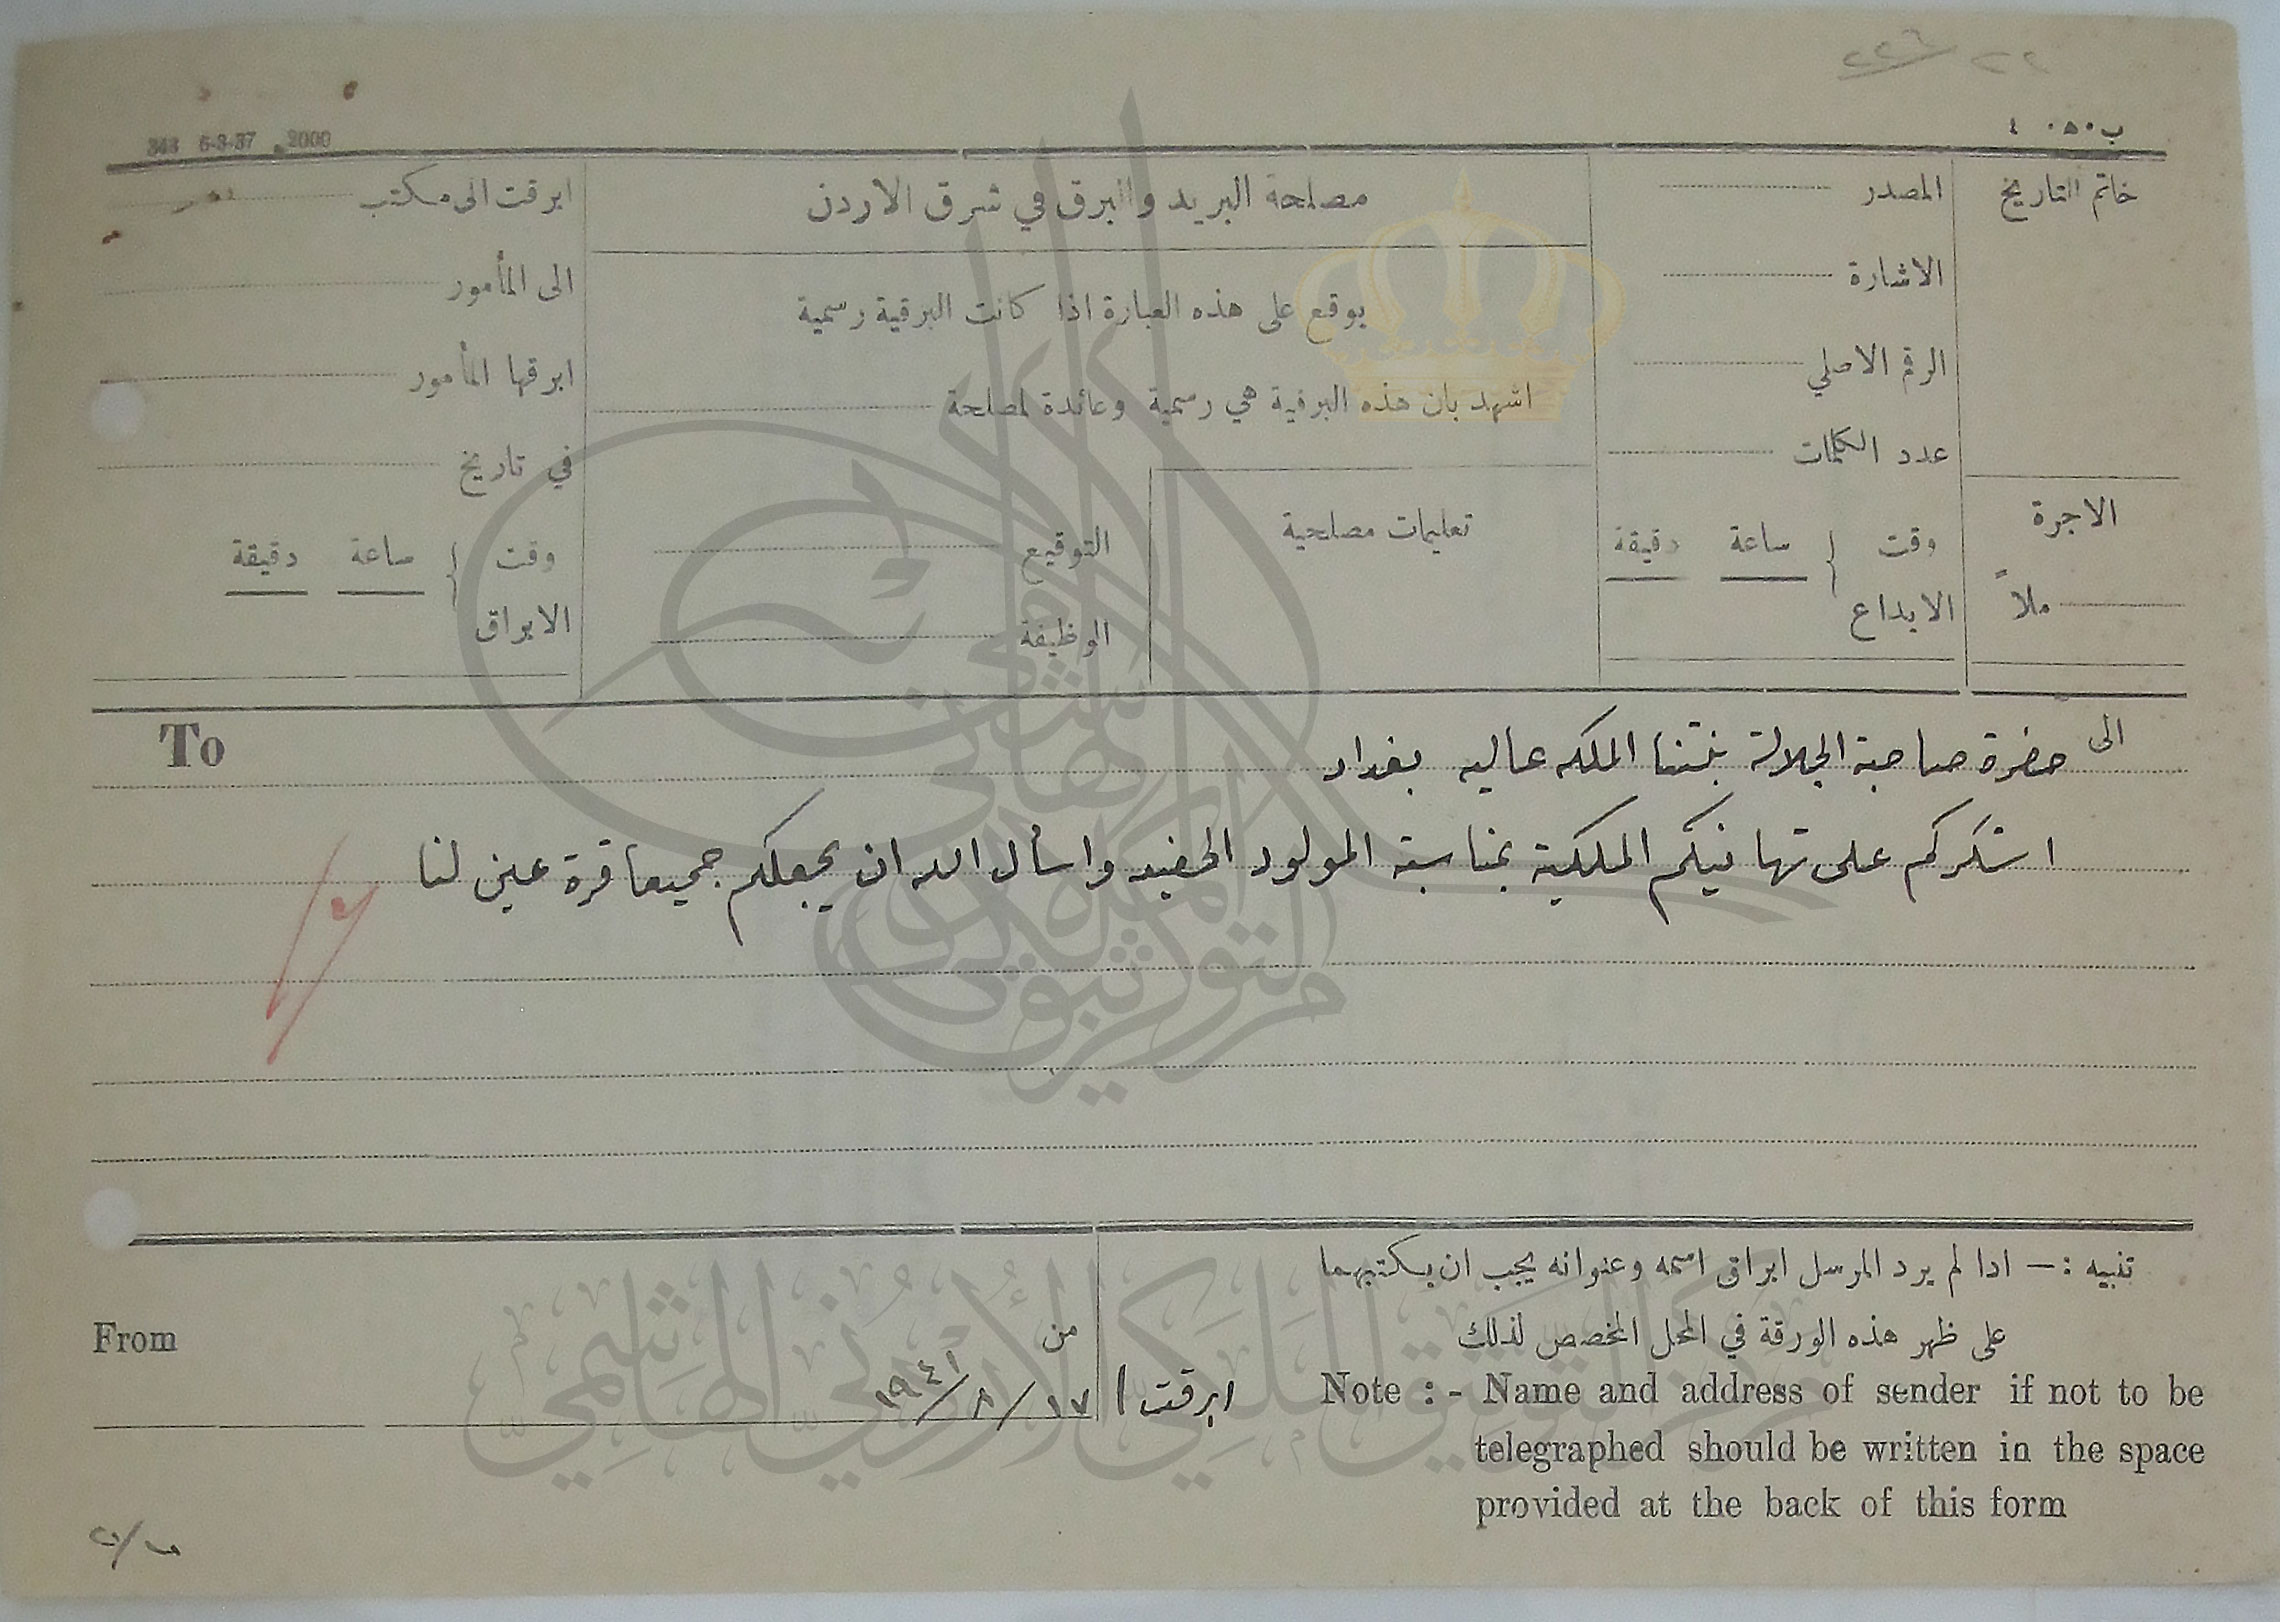 ٢٢ / ٢٢٦
ب ٠٥٠ ٤
343 6-3-37 2000
خاتم التاريخ
الاجرة
ملاً
المصدر
الاشارة
الرقم الاصلي
عدد الكلمات
وقت الايداع { ساعة دقيقة
مصلحة البريد والبرق في شرق الاردن
يوقع على هذه العبارة اذا كانت البرقية رسمية
اشهد بان هذه البرقية هي رسمية وعائدة لمصلحة
تعليمات مصلحية
التوقيع
الوظيفة
ابرقت الى مكتب
الى المأمور
ابرقها المأمور
في تاريخ
وقت الابراق { ساعة دقيقة
To
الى حضرة صاحبة الجلالة بنتنا الملكه عاليه بغداد
اشكركم على تهانيكم الملكية بمناسبة المولود الحفيد واسأل الله ان يجعلكم جميعا قرة عين لنا
تنبيه :— اذا لم يرد المرسل ابراق اسمه وعنوانه يجب ان يكتبهما
على ظهر هذه الورقة في المحل المخصص لذلك
Note : - Name and address of sender if not to be
telegraphed should be written in the space
provided at the back of this form
From
من
ابرقت ١٧/٨/١٩٤١
مركز التوثيق الملكي الأردني الهاشمي